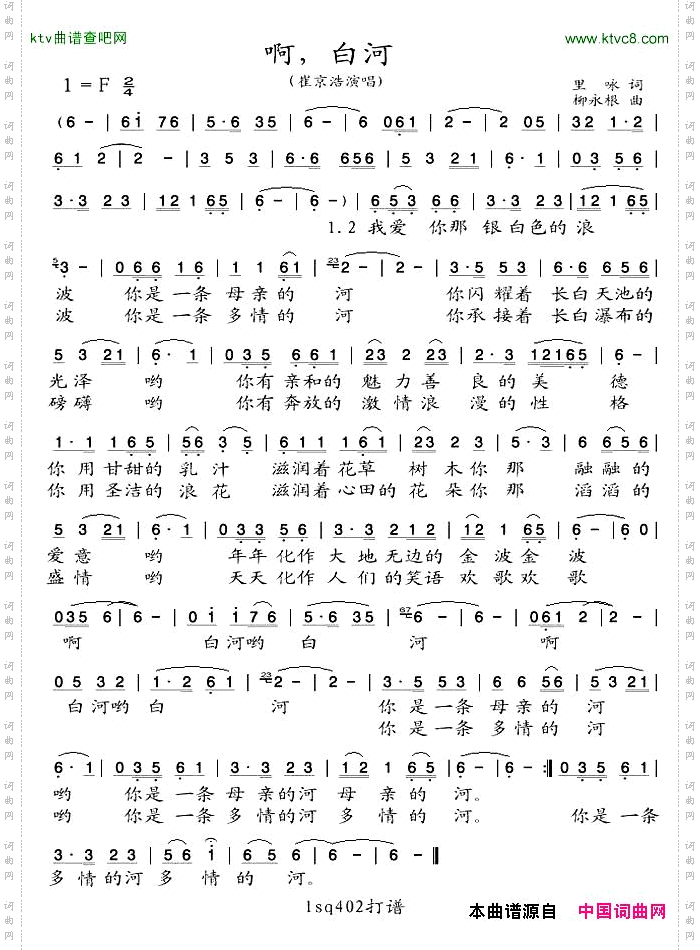 ktv曲谱查吧网
www.ktvc8.com
啊，白河
（崔京浩演唱)
1=F 2/4
里 咏 词
柳永根 曲
(6 - | 6i 76 | 5·6 35 | 6 - | 6 061 | 2 - | 2 05 | 32 1·2 |
61 2 | 2 - | 3 5 3 | 6·6 656 | 5 3 21 | 6 · 1 | 03 56 |
3·3 23 | 12 165 | 6 - | 6 -) | 653 66 | 3·3 23 | 12 165 |
1.2 我爱 你那 银白色的 浪
5 3 - | 066 16 | 1 1 61 | 23 2 - | 2 - | 3·5 53 | 6·6 656 |
波 你是一条 母亲的 河 你闪耀着 长白天池的
波 你是一条 多情的 河 你承接着 长白瀑布的
5 3 21 | 6 · 1 | 035 661 | 23 23 | 2·3 12165 | 6 - |
光泽 哟 你有亲和的 魅力善 良的美 德
磅礴 哟 你有奔放的 激情浪 漫的性 格
1·1 165 | 56 3 5 | 036 561 | 23 2 3 | 5·3 5 | 6 656 |
你用甘甜的 乳汁 滋润着花草 树木你那 融融的
你用圣洁的 浪花 滋润着心田的 花朵你那 滔滔的
5 3 21 | 6 · 1 | 033 56 | 3·3 212 | 12 1 65 | 6 - | 60
爱意 哟 年年化作 大地无边的 金波金 波
盛情 哟 天天化作 人们的笑语 欢歌欢 歌
035 6 | 6 - | 0 i i76 | 5·6 35 | 67 6 - | 6 - | 061 2 | 2 - |
啊 白河哟 白 河 啊
05 32 | 1·2 61 | 23 2 - | 2 - | 3·5 53 | 6 6 56 | 5 3 21 |
白河哟 白 河 你是一条 母亲的 河
你是一条 多情的 河
6·1 | 035 61 | 3·3 23 | 12 1 65 | 6 - | 6 - :| 035 61 |
哟 你是一条 母亲的河 母亲的 河。
哟 你是一条 多情的河 多情的 河。 你是一条
3·3 23 | 56 i | 65 6 | 6 - | 6 - ‖
多情的河 多 情 的 河。
1sq402打谱
本曲谱源自 中国词曲网
词曲网